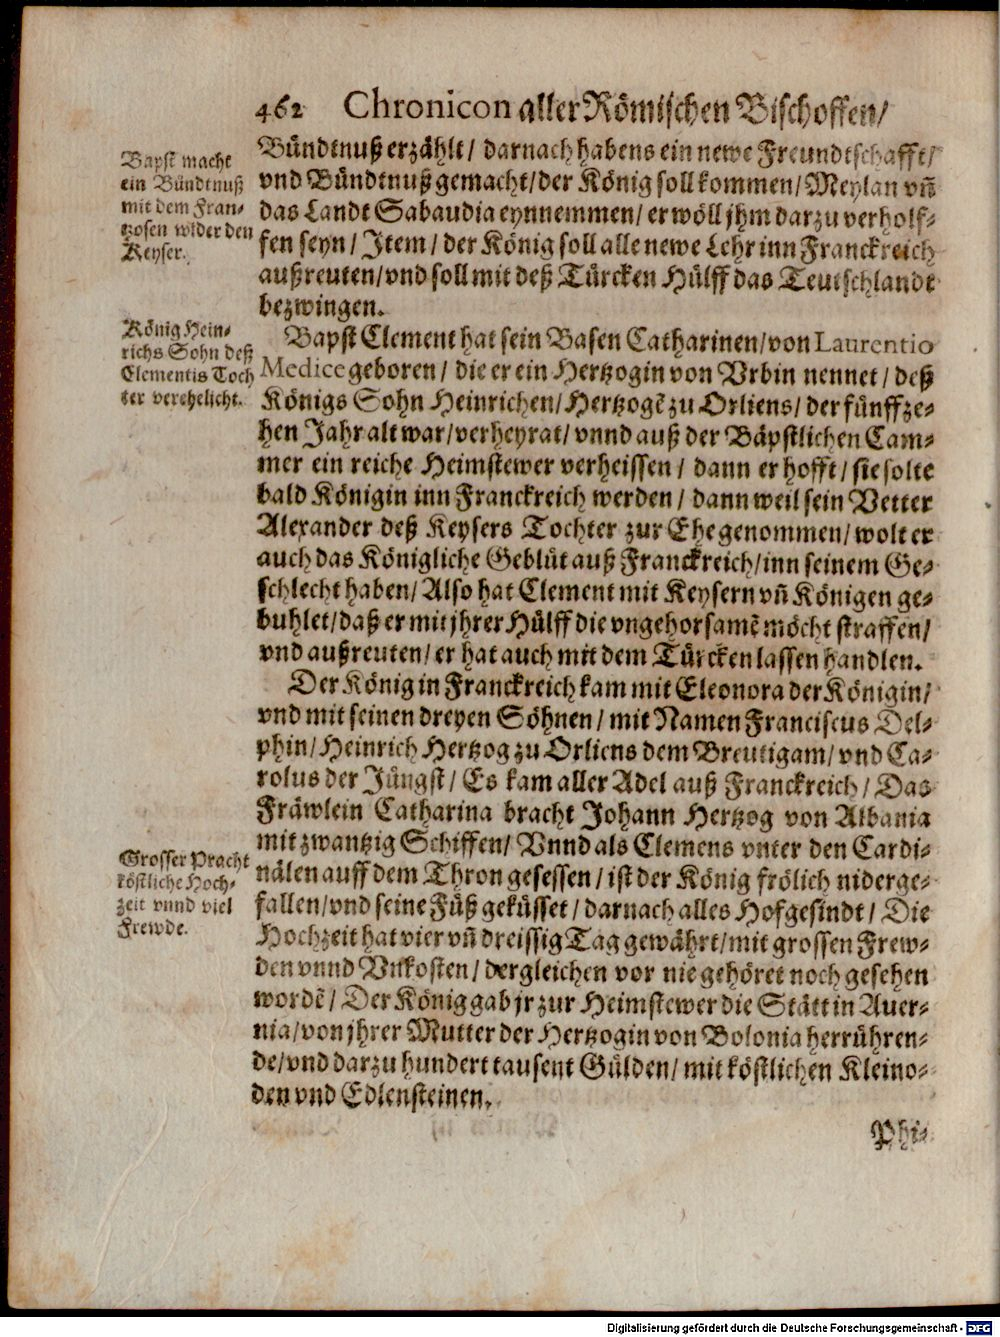 462 Chronicon aller Römischen Bischoffen/
Bündtnuß erzählt/ darnach habens ein newe Freundtschafft/
vnd Bündtnuß gemacht/der König soll kommen/Meylan vñ
das Landt Sabaudia eynnemmen/ er wöll jhm darzu verholf-
fen seyn/ Item/ der König soll alle newe Lehr inn Franckreich
außreuten/vnd soll mit deß Türcken Hülff das Teutschlandt
bezwingen.
Bapst macht
ein Bündtnuß
mit dem Fran-
tzosen wider den
Keyser.
Bapst Clement hat sein Basen Catharinen/von Laurentio
Medice geboren/ die er ein Hertzogin von Vrbin nennet/ deß
Königs Sohn Heinrichen/Hertzogē zu Orliens/der fünffze-
hen Jahr alt war/verheyrat/vnnd auß der Bäpstlichen Cam-
mer ein reiche Heimstewer verheissen/ dann er hofft/sie solte
bald Königin inn Franckreich werden/ dann weil sein Vetter
Alexander deß Keysers Tochter zur Ehe genommen/wolt er
auch das Königliche Geblüt auß Franckreich/inn seinem Ge-
schlecht haben/Also hat Clement mit Keysern vñ Königen ge-
buhlet/daß er mit jhrer Hülff die vngehorsamē möcht straffen/
vnd außreuten/er hat auch mit dem Türcken lassen handlen.
König Hein-
richs Sohn deß
Clementis Toch
ter verehelicht.
Der König in Franckreich kam mit Eleonora der Königin/
vnd mit seinen dreyen Söhnen/ mit Namen Franciscus Del-
phin/Heinrich Hertzog zu Orliens dem Breutigam/vnd Ca-
rolus der Jüngst/ Es kam aller Adel auß Franckreich/ Das
Fräwlein Catharina bracht Johann Hertzog von Albania
mit zwantzig Schiffen/ Vnnd als Clemens vnter den Cardi-
nälen auff dem Thron gesessen/ist der König frölich niderge-
fallen/vnd seine Füß geküsset/darnach alles Hofgesindt/ Die
Hochzeit hat vier vñ dreissig Tag gewährt/mit grossen Frew-
den vnnd Vnkosten/ dergleichen vor nie gehöret noch gesehen
wordē/ Der König gab jr zur Heimstewer die Stätt in Auer-
nia/von jhrer Mutter der Hertzogin von Bolonia herrühren-
de/vnd darzu hundert tausent Gülden/ mit köstlichen Kleino-
den vnd Edlensteinen.
Grosser Pracht
köstliche Hoch-
zeit vnnd viel
Frewde.
Phi-
Digitalisierung gefördert durch die Deutsche Forschungsgemeinschaft - DFG